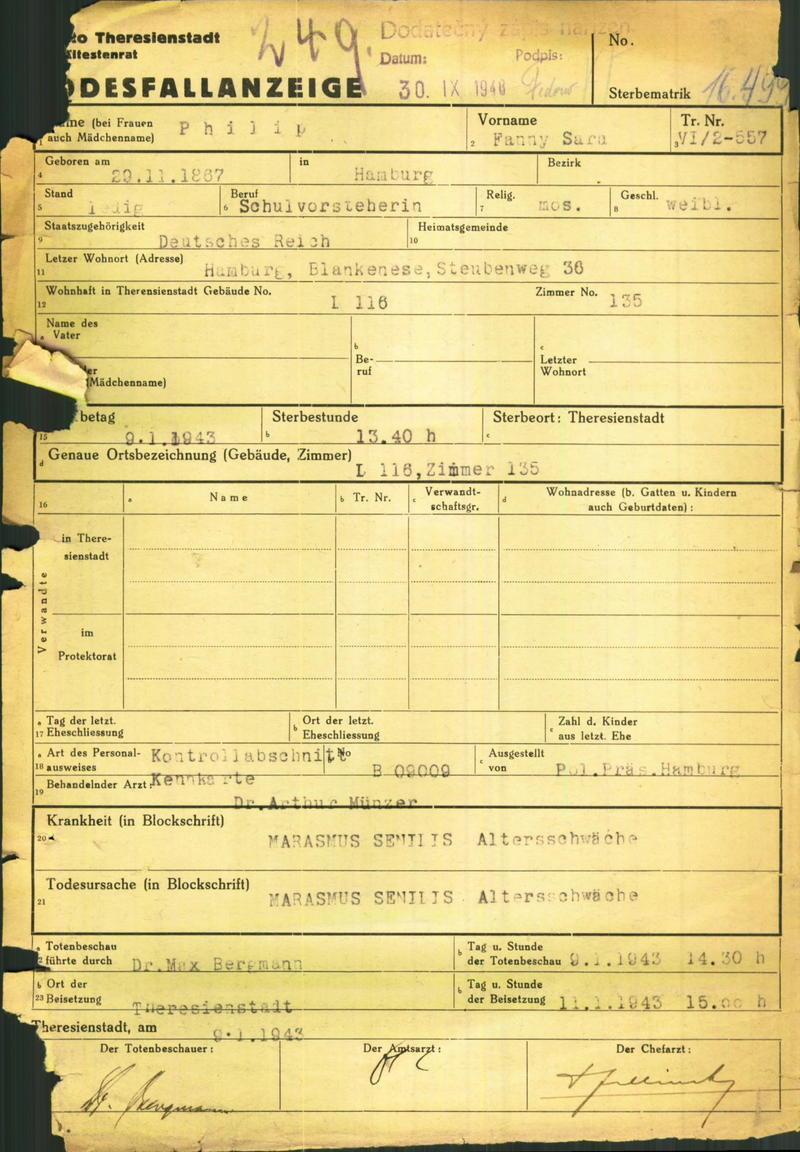 Theresienstadt
ltestenrat
449
Dodatečný zápis
Datum:
Podpis:
30. IX 1948
No.
ODESFALLANZEIGE
Sterbematrik 16.499
me (bei Frauen auch Mädchenname) Philip
2 Vorname Fanny Sara
3 Tr. Nr. VI/2-557
4 Geboren am 29.11.1867
in Hamburg
Bezirk
5 Stand ledig
6 Beruf Schulvorsteherin
7 Relig. mos.
8 Geschl. weibl.
9 Staatszugehörigkeit Deutsches Reich
10 Heimatsgemeinde
11 Letzer Wohnort (Adresse) Hamburg, Blankenese, Steubenweg 36
12 Wohnhaft in Therensienstadt Gebäude No. L 116
Zimmer No. 135
Name des
a Vater
b Beruf
c Letzter Wohnort
er
(Mädchenname)
15 betag 9.1.1943
b Sterbestunde 13.40 h
c Sterbeort: Theresienstadt
d Genaue Ortsbezeichnung (Gebäude, Zimmer) L 116, Zimmer 135
16
a Name
b Tr. Nr.
c Verwandt-
schaftsgr.
d Wohnadresse (b. Gatten u. Kindern
auch Geburtdaten) :
Verwandte
in There-
sienstadt
im
Protektorat
17 a Tag der letzt. Eheschliessung
b Ort der letzt. Eheschliessung
c Zahl d. Kinder aus letzt. Ehe
18 a Art des Personal-
ausweises Kontrollabschnitt
Kennkarte
No B 09009
c Ausgestellt von Pol.Präs.Hamburg
19 Behandelnder Arzt: Dr.Arthur Münzer
20 Krankheit (in Blockschrift)
MARASMUS SENILIS Altersschwäche
21 Todesursache (in Blockschrift)
MARASMUS SENILIS Altersschwäche
a Totenbeschau
führte durch Dr.Max Bergmann
b Tag u. Stunde
der Totenbeschau 9.1.1943 14.30 h
b Ort der
23 Beisetzung Theresienstadt
b Tag u. Stunde
der Beisetzung 11.1.1943 15.00 h
Theresienstadt, am 9.1.1943
Der Totenbeschauer:
Der Amtsarzt:
Der Chefarzt:
Dr. Bergmann